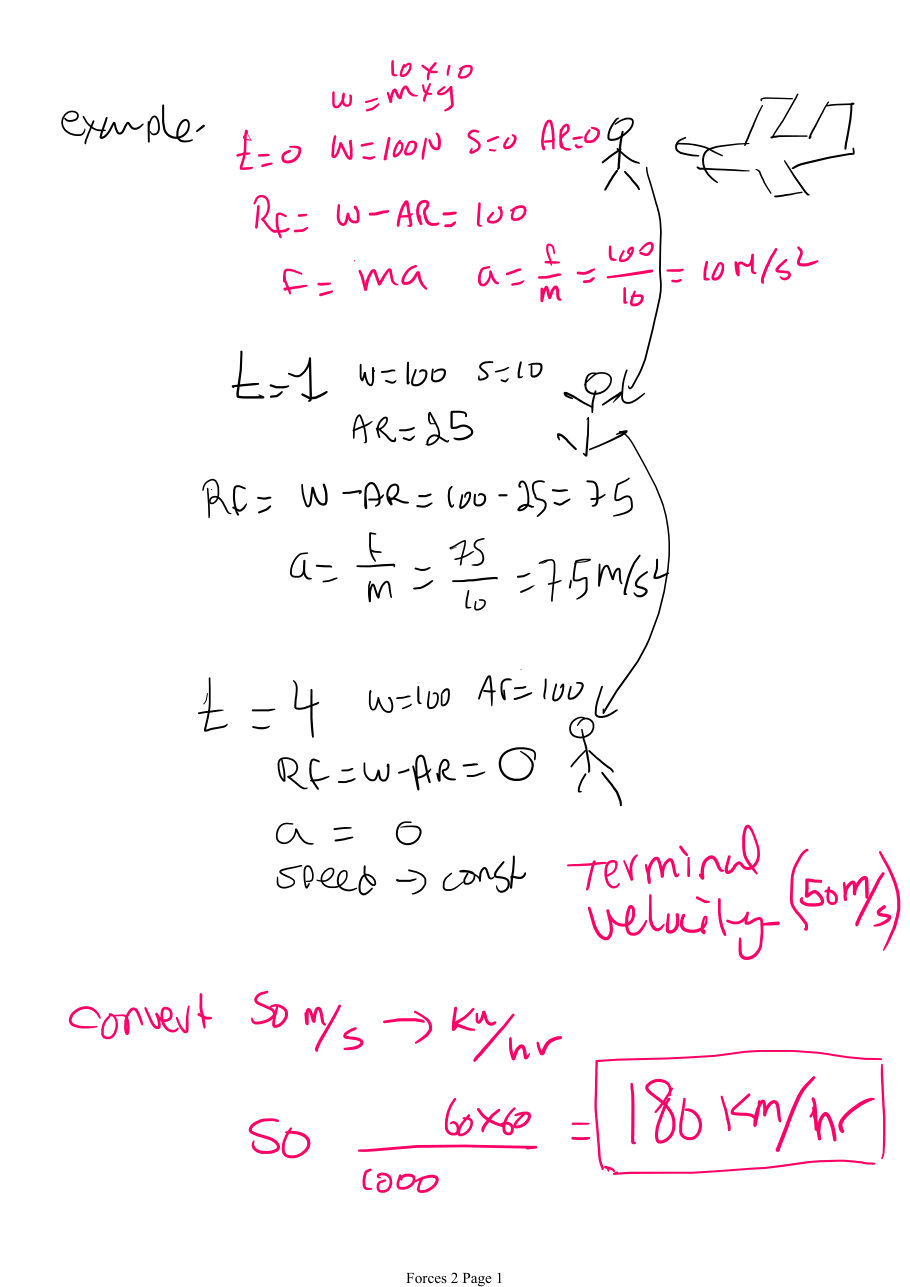 10 × 10
W = m×g
example.
t=0 W=100N S=0 AR=0
Rf = W - AR = 100
F = ma a = f/m = 100/10 = 10 M/s²
t=1 W=100 S=10
AR=25
Rf = W - AR = 100 - 25 = 75
a = F/m = 75/10 = 7.5 m/s²
t=4 W=100 Ar=100
RF = W-AR = 0
a = 0
speed → const
Terminal
velocity (50 m/s)
convert 50 m/s → Km/hr
50 60×60/1000 = 180 Km/hr
Forces 2 Page 1